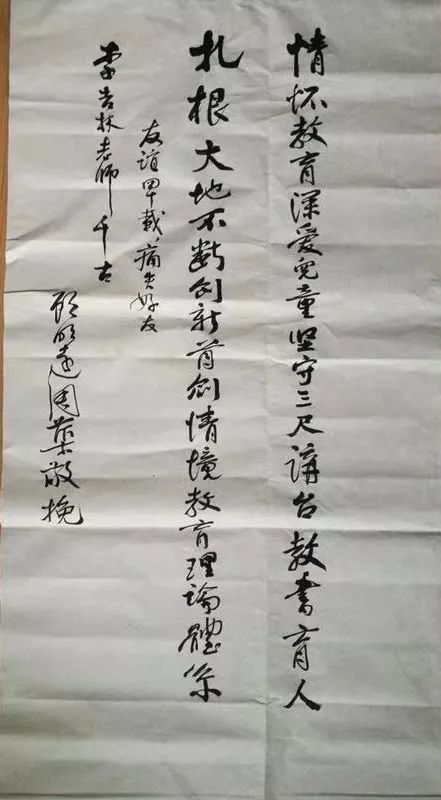 情怀教育深爱儿童坚守三尺讲台教书育人
扎根大地不断创新首创情境教育理論體系
友谊卌载痛失好友
李吉林老师千古
顾明远周蕖敬挽